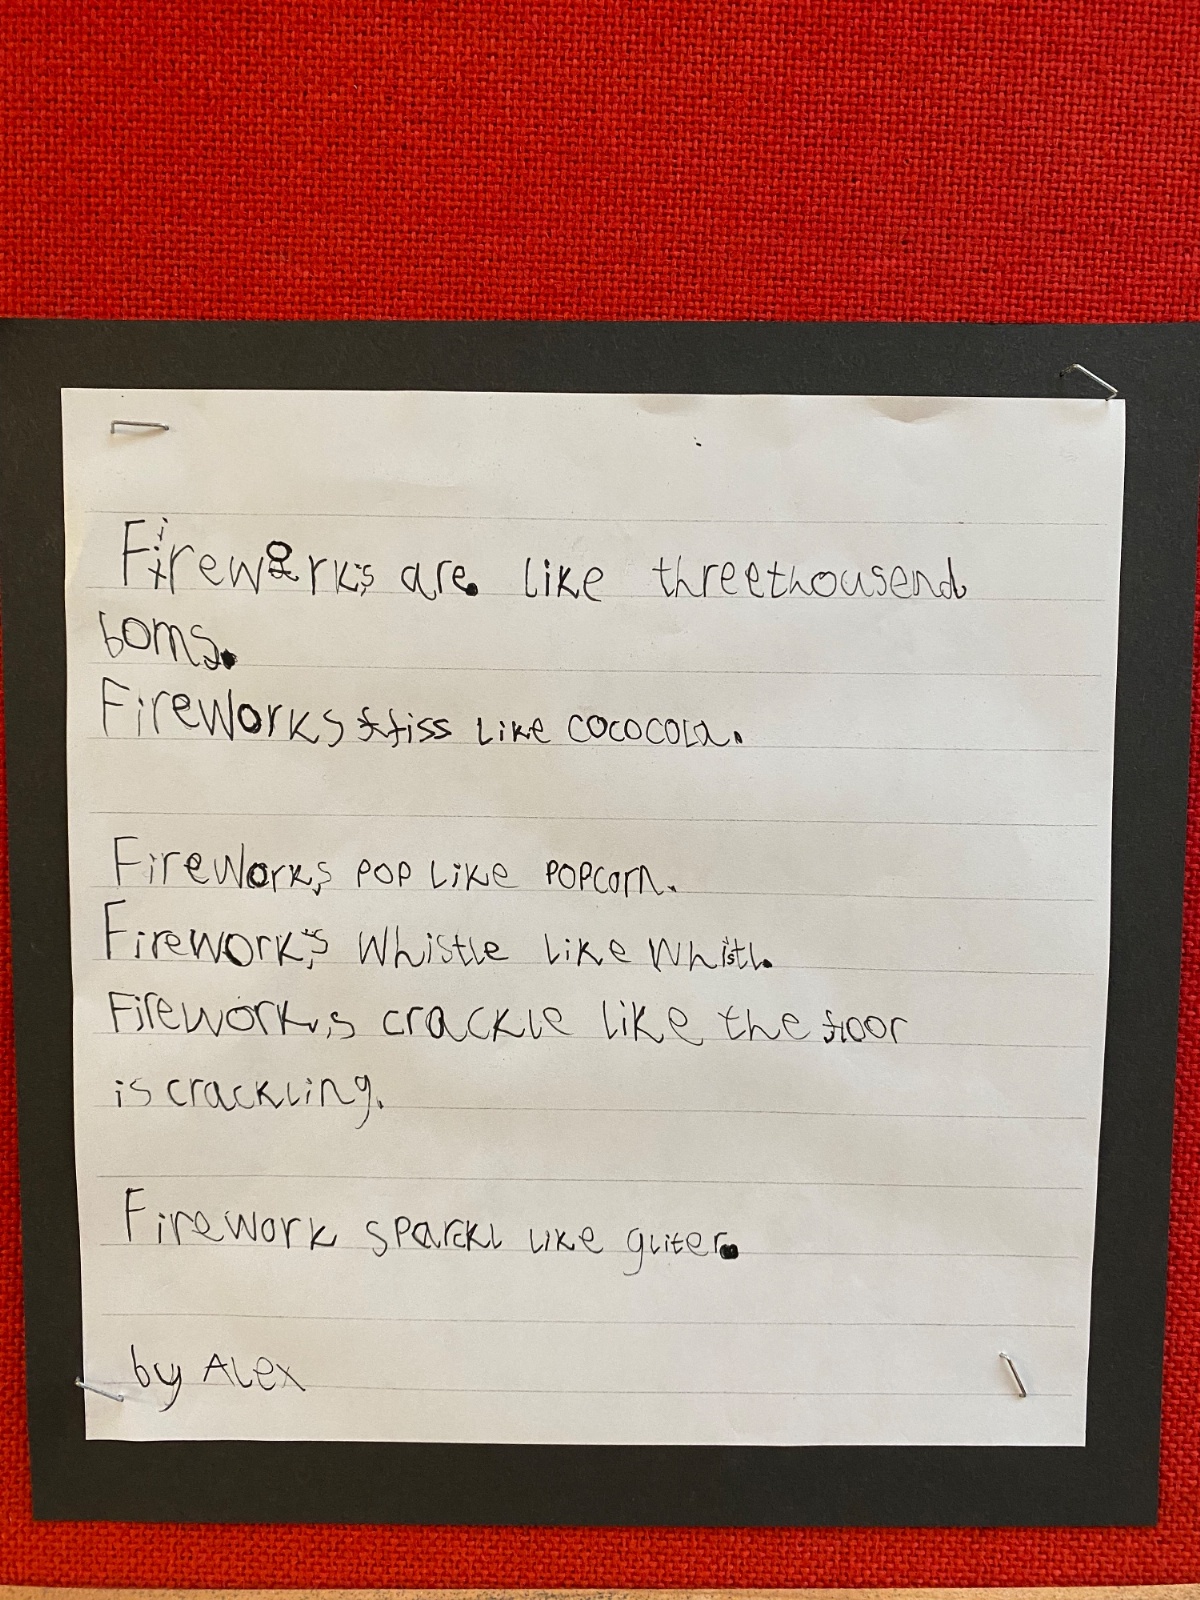 Fireworks are. like threethousend
boms.
Fireworks ffiss like cococola.
Fireworks pop like popcorn.
Fireworks whistle like whistl.
Fireworks crackle like the floor
is crackling.
Firework sparckl like gliter.
by Alex